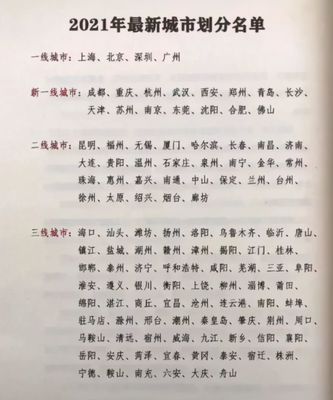 2021年最新城市划分名单
一线城市：上海、北京、深圳、广州
新一线城市：成都、重庆、杭州、武汉、西安、郑州、青岛、长沙、
天津、苏州、南京、东莞、沈阳、合肥、佛山
二线城市：昆明、福州、无锡、厦门、哈尔滨、长春、南昌、济南、
大连、贵阳、温州、石家庄、泉州、南宁、金华、常州、
珠海、惠州、嘉兴、南通、中山、保定、兰州、台州、
徐州、太原、绍兴、烟台、廊坊
三线城市：海口、汕头、潍坊、扬州、洛阳、乌鲁木齐、临沂、唐山、
镇江、盐城、湖州、赣州、漳州、揭阳、江门、桂林、
邯郸、泰州、济宁、呼和浩特、咸阳、芜湖、三亚、阜阳、
淮安、遵义、银川、衡阳、上饶、柳州、淄博、莆田、
绵阳、湛江、商丘、宜昌、沧州、连云港、南阳、蚌埠、
驻马店、滁州、邢台、潮州、秦皇岛、肇庆、荆州、周口、
马鞍山、清远、宿州、威海、九江、新乡、信阳、襄阳、
岳阳、安庆、菏泽、宜春、黄冈、泰安、宿迁、株洲、
宁德、鞍山、南充、六安、大庆、舟山